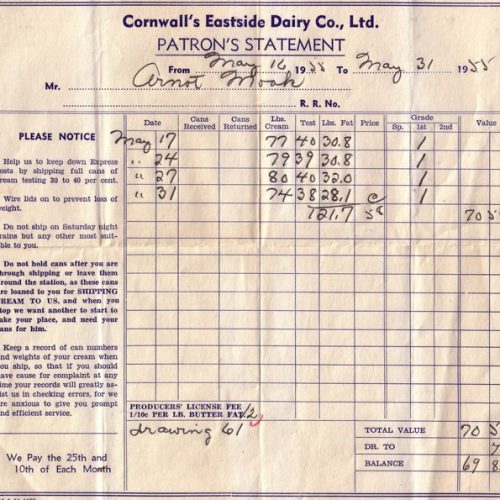 Cornwall's Eastside Dairy Co., Ltd.
PATRON'S STATEMENT
From May 16 1955 To May 31 1955
Mr. Arnot Moak
R. R. No.
PLEASE NOTICE
Help us to keep down Express
costs by shipping full cans of
cream testing 30 to 40 per cent.
Wire lids on to prevent loss of
weight.
Do not ship on Saturday night
trains but any other most suit-
able to you.
Do not hold cans after you are
through shipping or leave them
around the station, as these cans
are loaned to you for SHIPPING
CREAM TO US, and when you
stop we want another to start to
take your place, and need your
cans for him.
Keep a record of can numbers
and weights of your cream when
you ship, so that if you should
have cause for complaint at any
time your records will greatly as-
sist us in checking errors, for we
are anxious to give you prompt
and efficient service.
We Pay the 25th and
10th of Each Month
Date Cans Received Cans Returned Lbs. Cream Test Lbs. Fat Price Grade Sp. 1st 2nd Value
May 17 77 40 30.8 1
" 24 79 39 30.8 1
" 27 80 40 32.0 1
" 31 74 38 28.1 1
121.7 58 c 70 5
PRODUCERS' LICENSE FEE
1/10c PER LB. BUTTER FAT 12
drawing 61
TOTAL VALUE 70 5
DR. TO 7
BALANCE 69 8